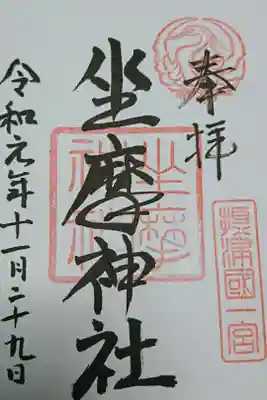 奉拝
坐摩神社
摂津國一宮
令和元年十一月二十九日